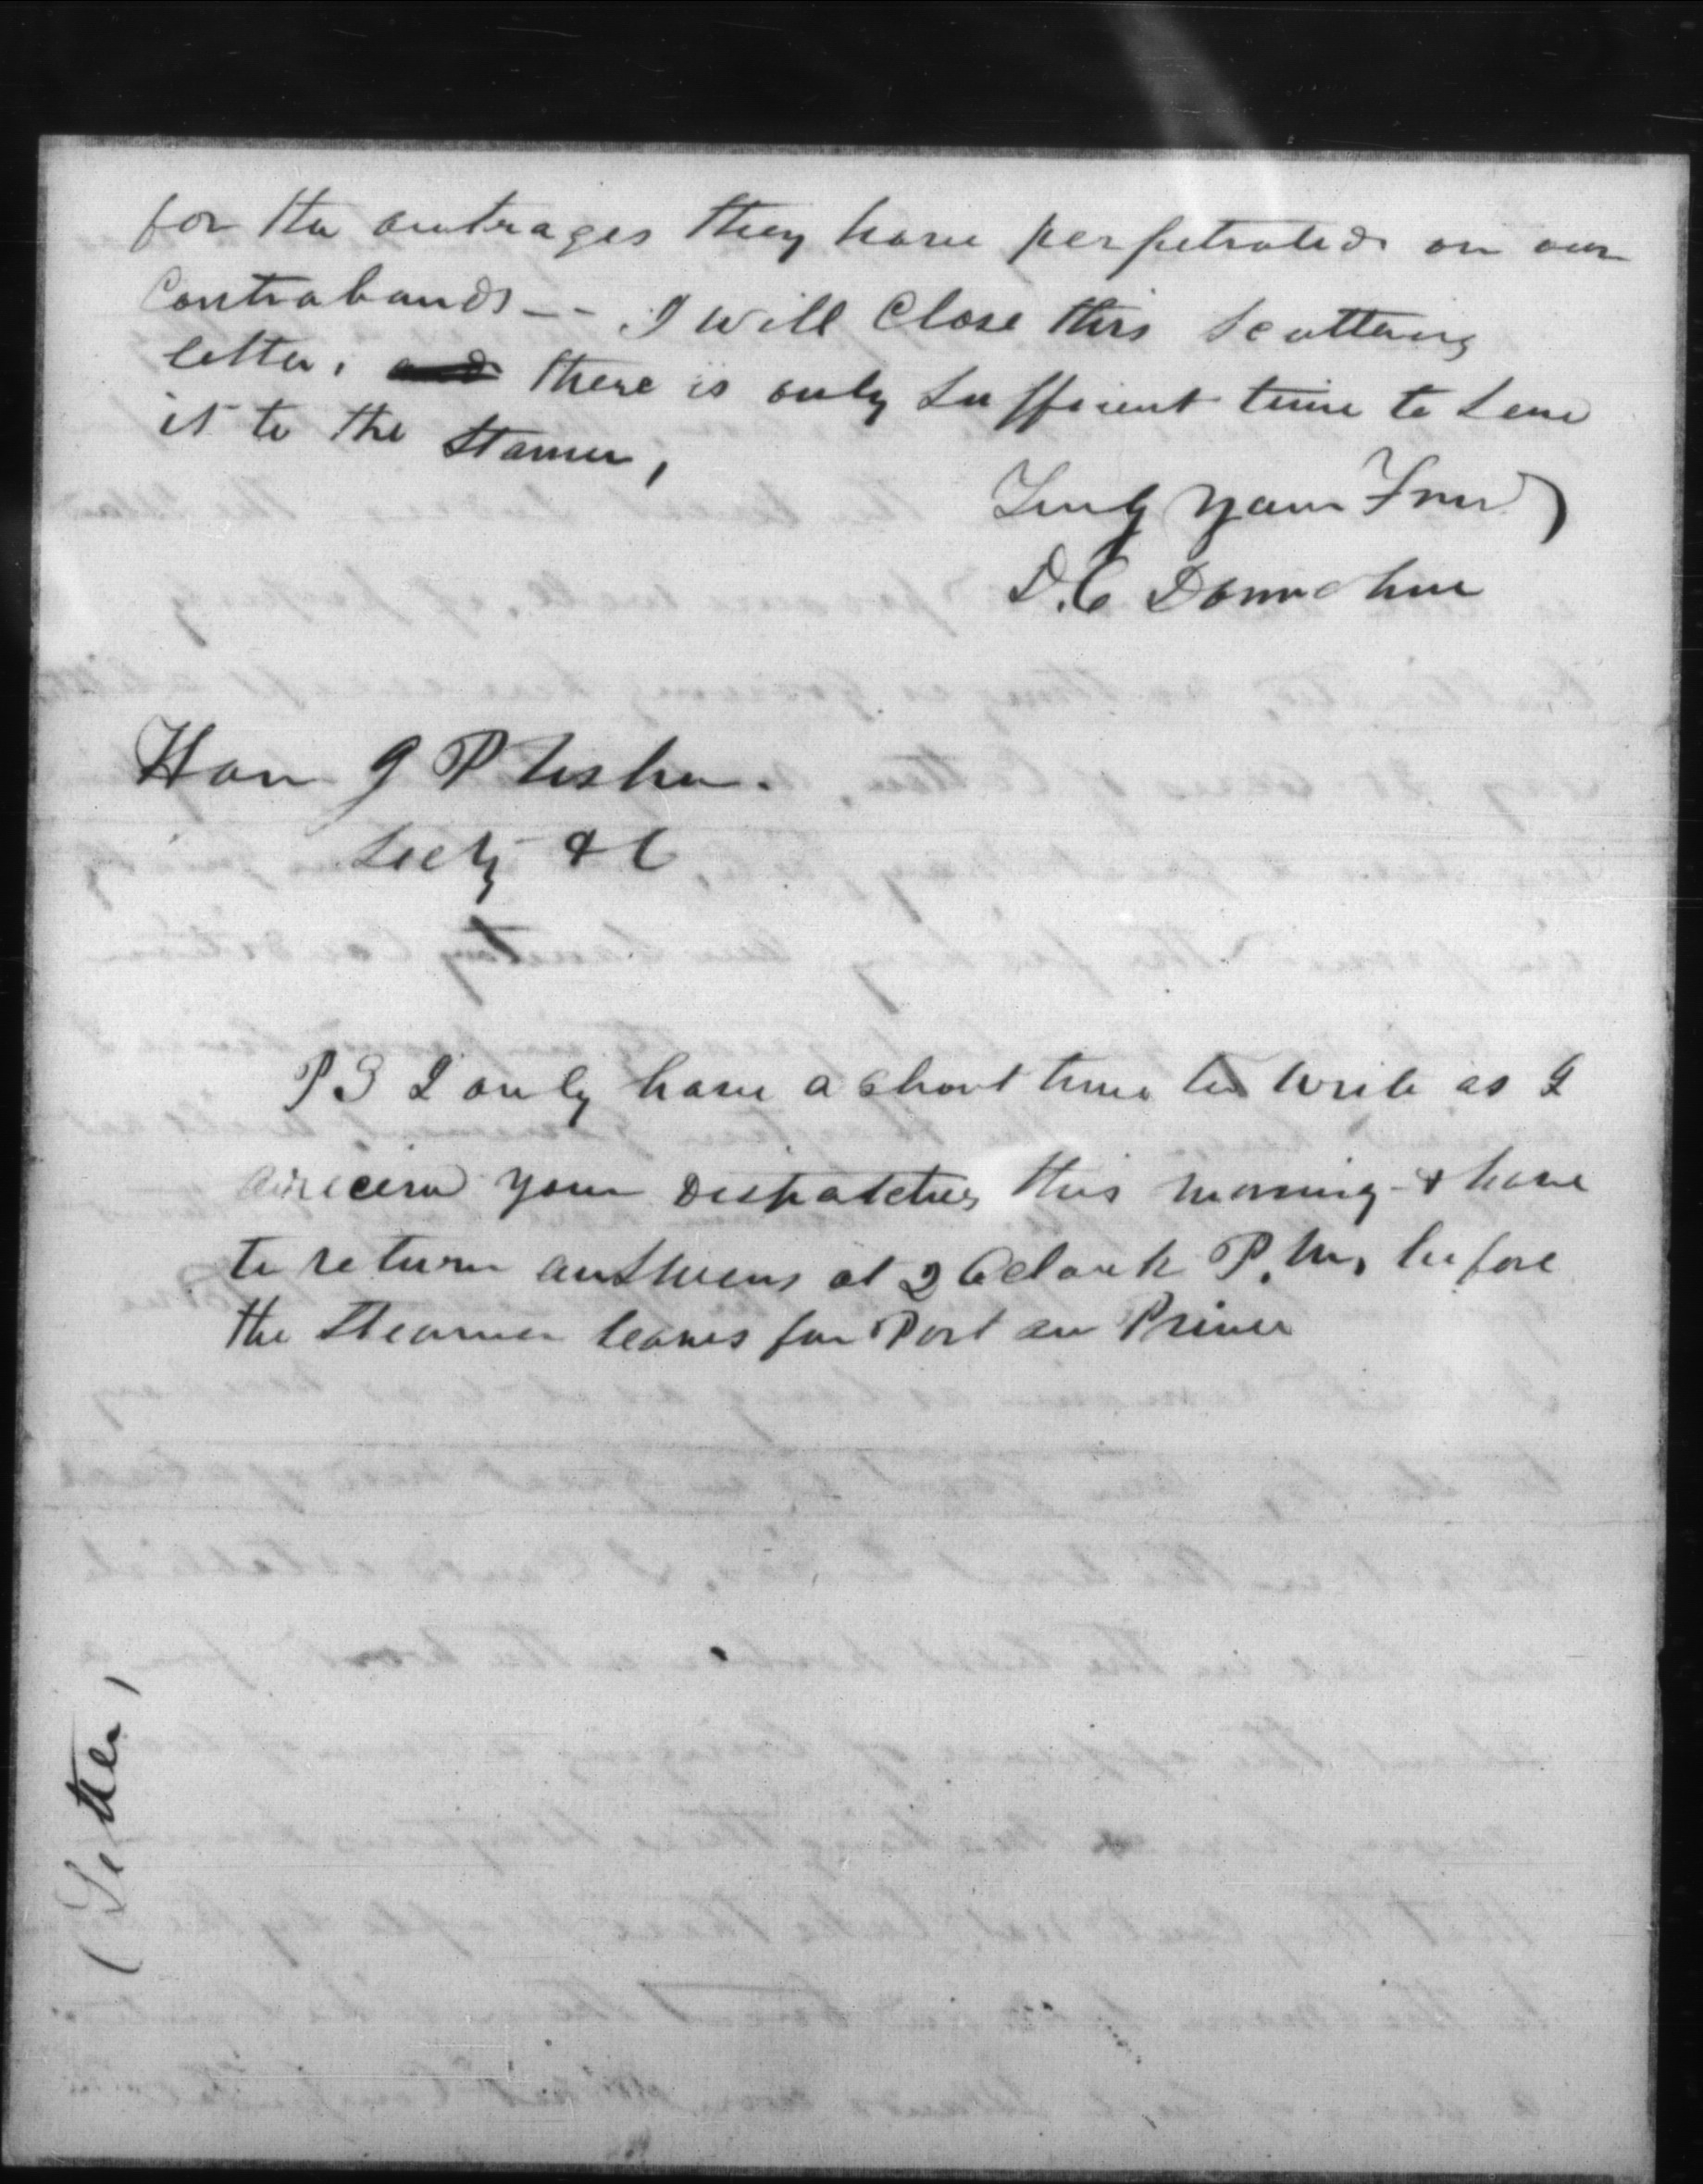 for the outrages they have perpetrated on our
Contrabands -- I will Close this Scattering
letter, there is only Sufficient time to Send
it to the Steamer,
Truly Your Friend
D. C Donnohue
Hon J P Usher.
Secty &C
P S I only have a short time to write as I
received your Dispatches this morning & have
to return answers at 2 Oclock P.M, before
the Steamer leaves for Port au Prince
(Letter)